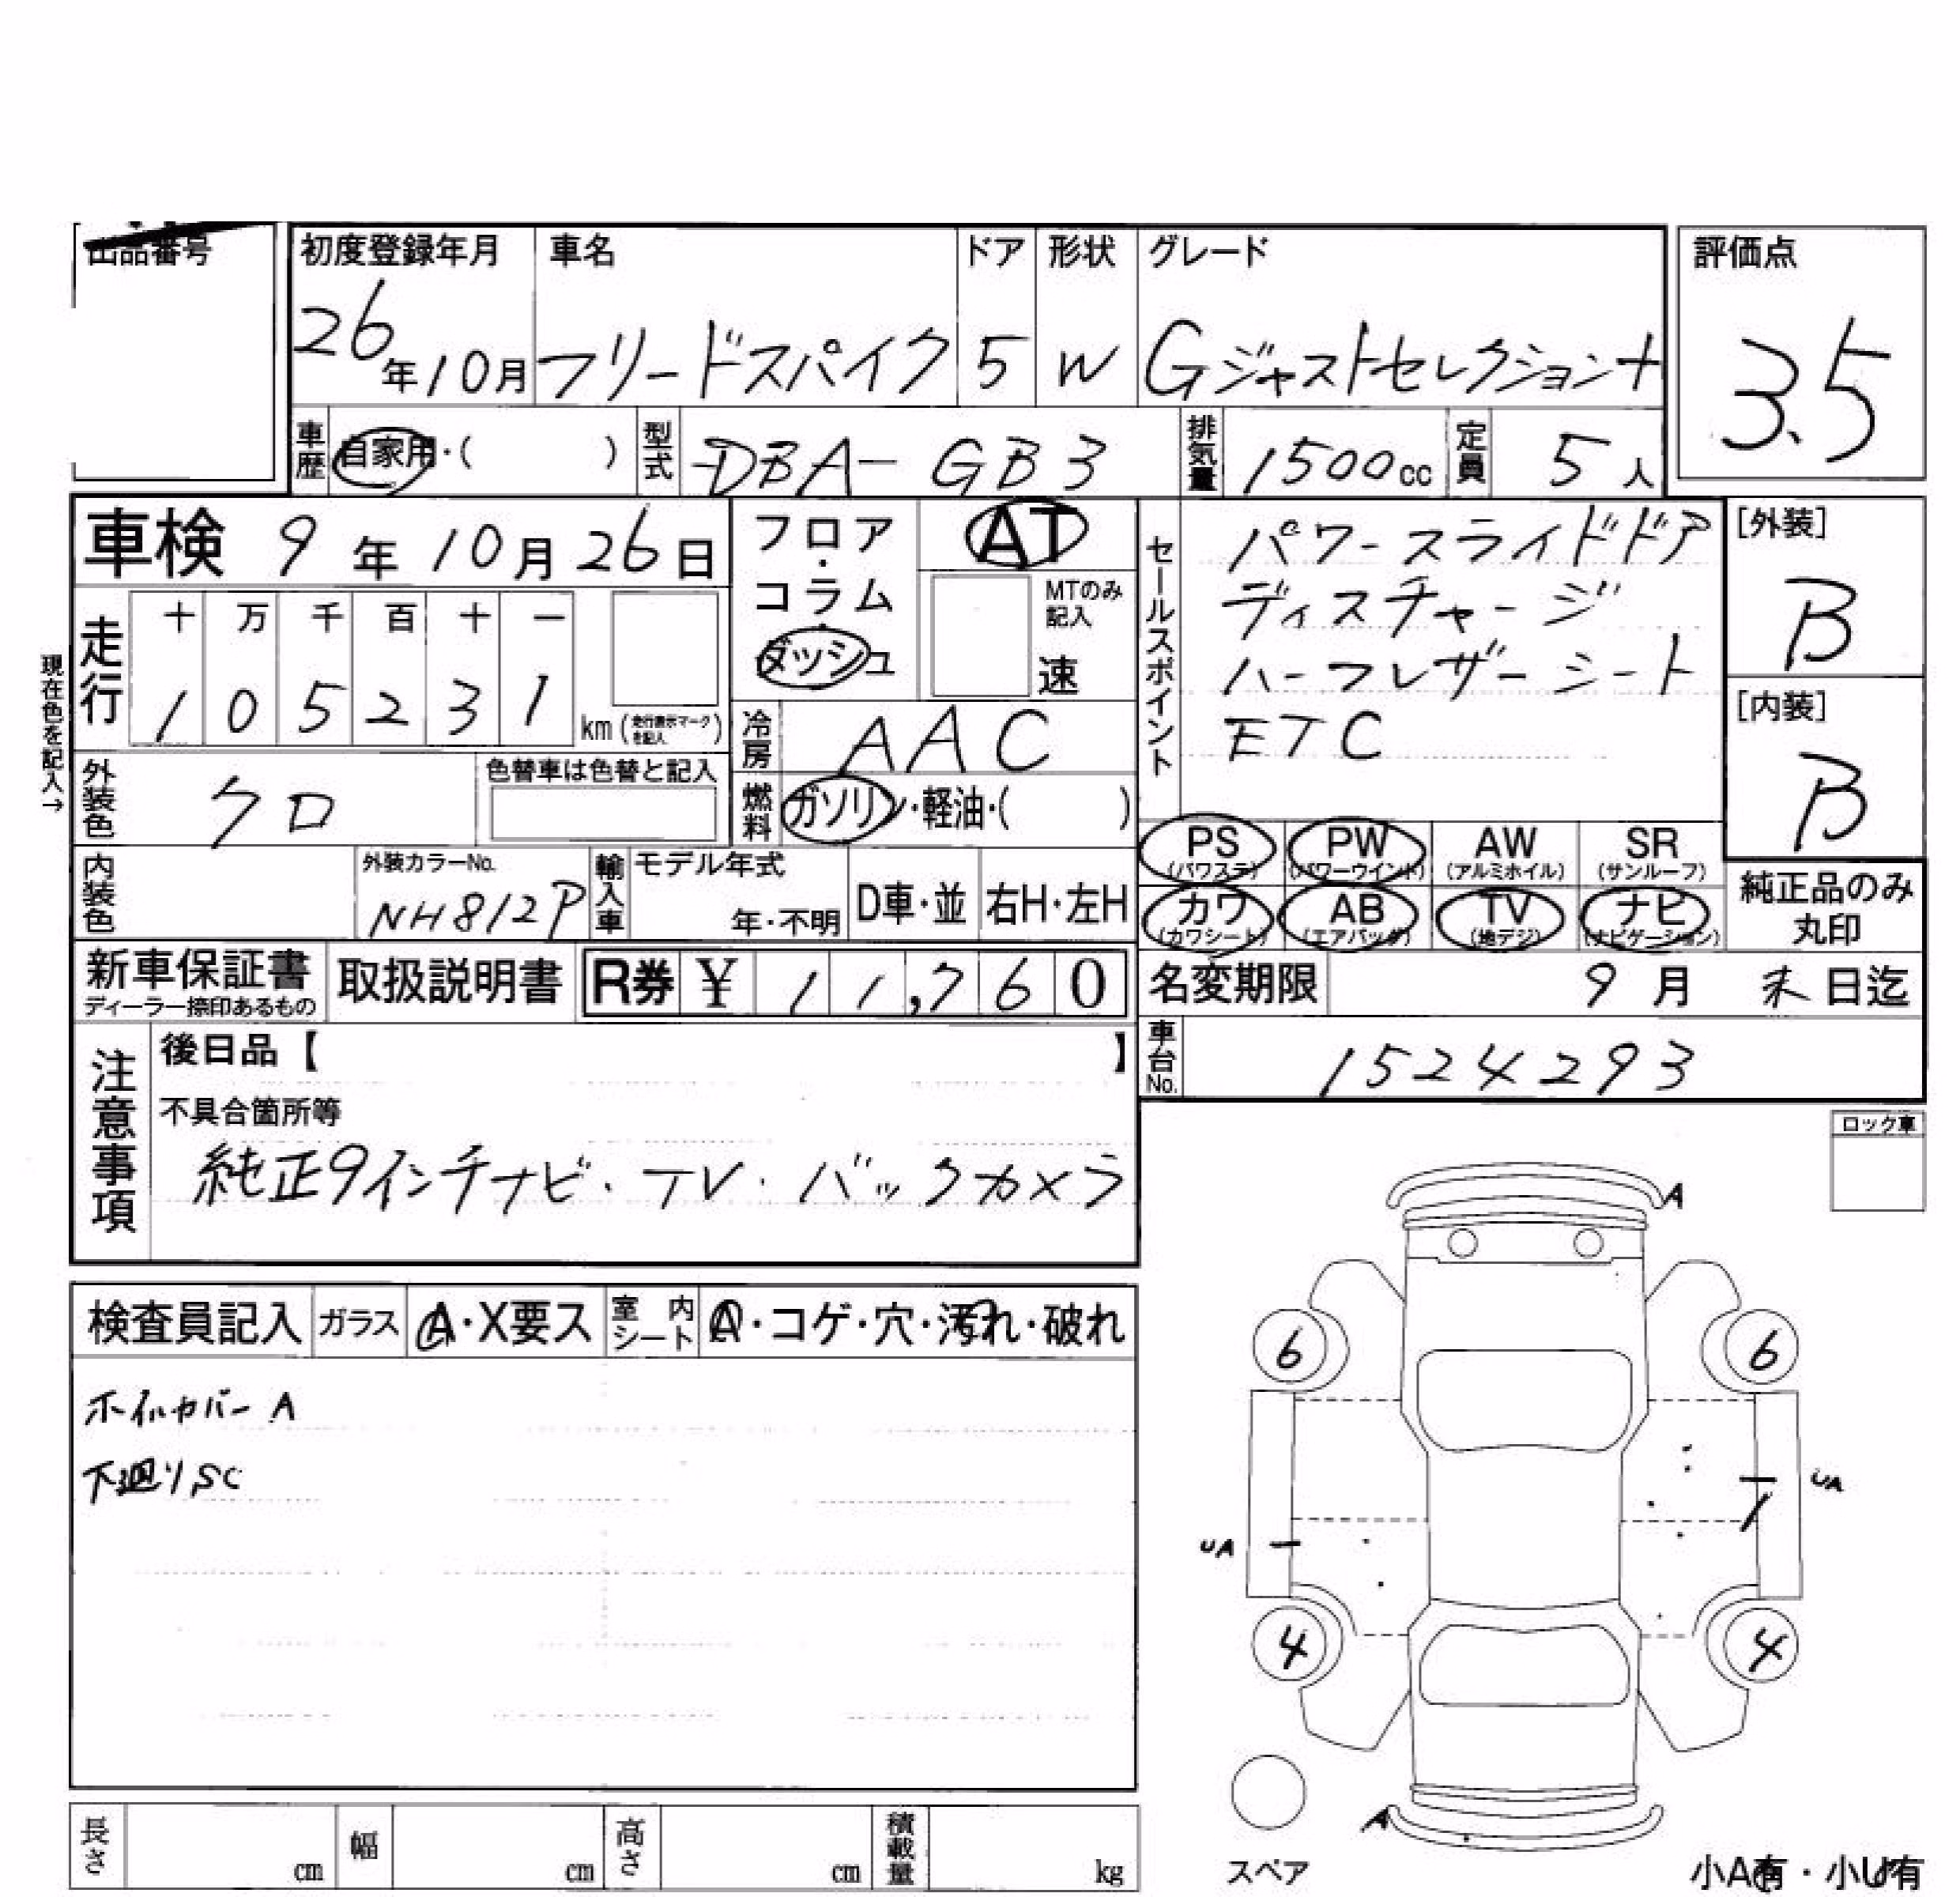 出品番号
初度登録年月 車名 ドア 形状 グレード 評価点
26年10月 フリードスパイク 5 W Gジャストセレクション+ 3.5
車歴 自家用・( ) 型式 DBA-GB3 排気量 1500cc 定員 5人
車検 9年10月26日
フロア・コラム・ダッシュ
AT
MTのみ記入
速
セールスポイント
パワースライドドア
ディスチャージ
ハーフレザーシート
ETC
[外装]
B
[内装]
B
現在色を記入→
走行 十 万 千 百 十 一
1 0 5 2 3 1 km (走行表示マークを記入)
冷房 AAC
外装色 クロ 色替車は色替と記入
燃料 ガソリン・軽油・( )
PS (パワステ) PW (パワーウインド) AW (アルミホイル) SR (サンルーフ)
カワ (カワシート) AB (エアバッグ) TV (地デジ) ナビ (ナビゲーション)
純正品のみ丸印
内装色 外装カラーNo. NH812P 輸入車 モデル年式 年・不明 D車・並 右H・左H
新車保証書 ディーラー捺印あるもの 取扱説明書 R券 ¥ 11,760
名変期限 9月 末日迄
車台No. 1524293
注意事項
後日品【 】
不具合箇所等
純正9インチナビ・TV・バックカメラ
ロック車
検査員記入 ガラス A・X要ス 室内シート A・コゲ・穴・汚れ・破れ
ホイルカバーA
下廻りSC
A
6 6
UA
UA
4 4
A
スペア
小A有・小U有
長さ cm 幅 cm 高さ cm 積載量 kg